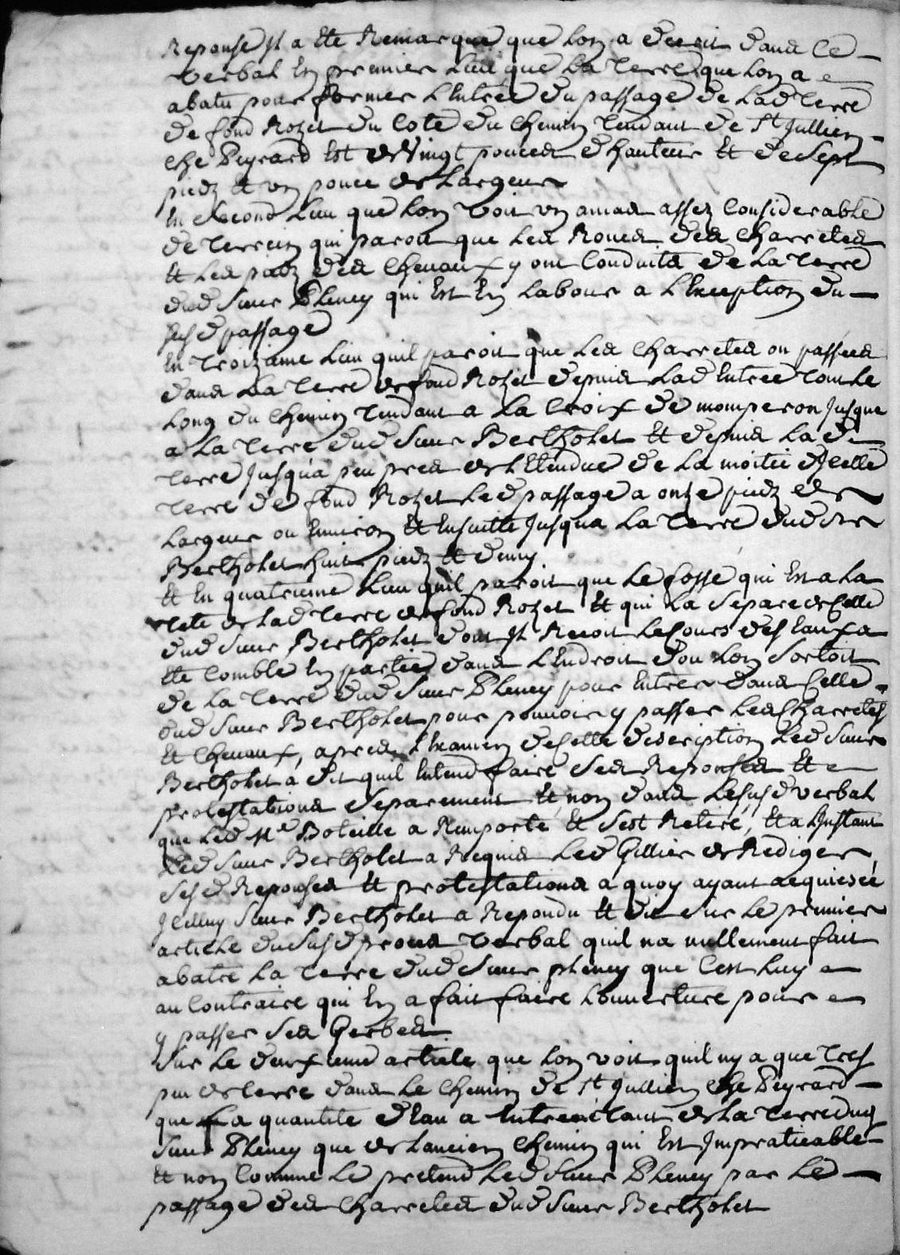 Reponse Jl a ete Remarque que lon a decrit dans le
verbal En premier lieu que la Terre que lon a
abatu pour former l'Entrée du passage de lad Terre
de fond Rozet du Coté du Chemin Tendant de St Jullien
che Peyrard Est de Vingt pouces d'hauteur Et de sept
piedz Et un pouce de Largeur
En second Lieu que lon voit un amas assez Considerable
de Terrein qui paroit que Les Roues des Charretes
Et Les piedz des Chevaux y ont Conduits de La Terre
dud Sieur Pleney qui Est En Labour a L'Exception du
susd passage
En Troizième Lieu quil paroit que Les Charretes on passées
dans La Terre de fond Rozet depuis Lad Entrée Tout Le
Long du Chemin Tendant a La Croix de momperon Jusque
a La Terre dud Sieur Bertholet Et depuis La de
Terre Jusqua peu pres de l'Etendue de La moitié d'Jcelle
Terre de fond Rozet Le d passage a onze piedz de
Largeur ou Environ Et Ensuitte Jusqua La Terre dud Sr
Bertholet huit piedz Et demy
Et En quatrieme Lieu quil paroit que Le fossé qui Est a La
Tete de Lad Terre de fond Rozet Et qui La Separe de Celle
dud Sieur Bertholet dont Jl Recoit Le Cours des Eaux a
Ete Comblé En partie dans L'Endroit dou Lon Sortoit
de La Terre dud Sieur Pleney pour Entrer dans Celle
dud Sieur Bertholet pour pouvoir y passer Les Charretes
Et Chevaux, apres L'Examen de Cette description Led Sieur
Bertholet a dit quil Entend faire Ses Reponses Et
protestations Separement Et non dans Le susd verbal
que Led Me Boteille a Remporté Et Sest Retiré, Et a L'Instant
Led Sieur Bertholet a Requis Led Gillier de Rediger
Ses d Reponses Et protestations a quoy ayant acquiescé
Jcelluy Sieur Bertholet a Repondu Et dit Sur Le premier
article du Susd proces verbal quil na nullement fait
abatre La Terre dud Sieur pleney que C'est Luy
au Contraire qui En a fait faire L'ouverture pour
y passer Ses Gerbes
Sur Le deuxieme article que Lon voit quil ny a que Tres
peu de Terre dans Le Chemin de St Jullien che Peyrard
que La quantité d'Eau a Entrainé tant de La Terre dud
Sieur Pleney que de L'ancien Chemin qui Est Impraticable
Et non Comme Le pretend Led Sieur Pleney par Led
passage des Charretes dud Sieur Bertholet